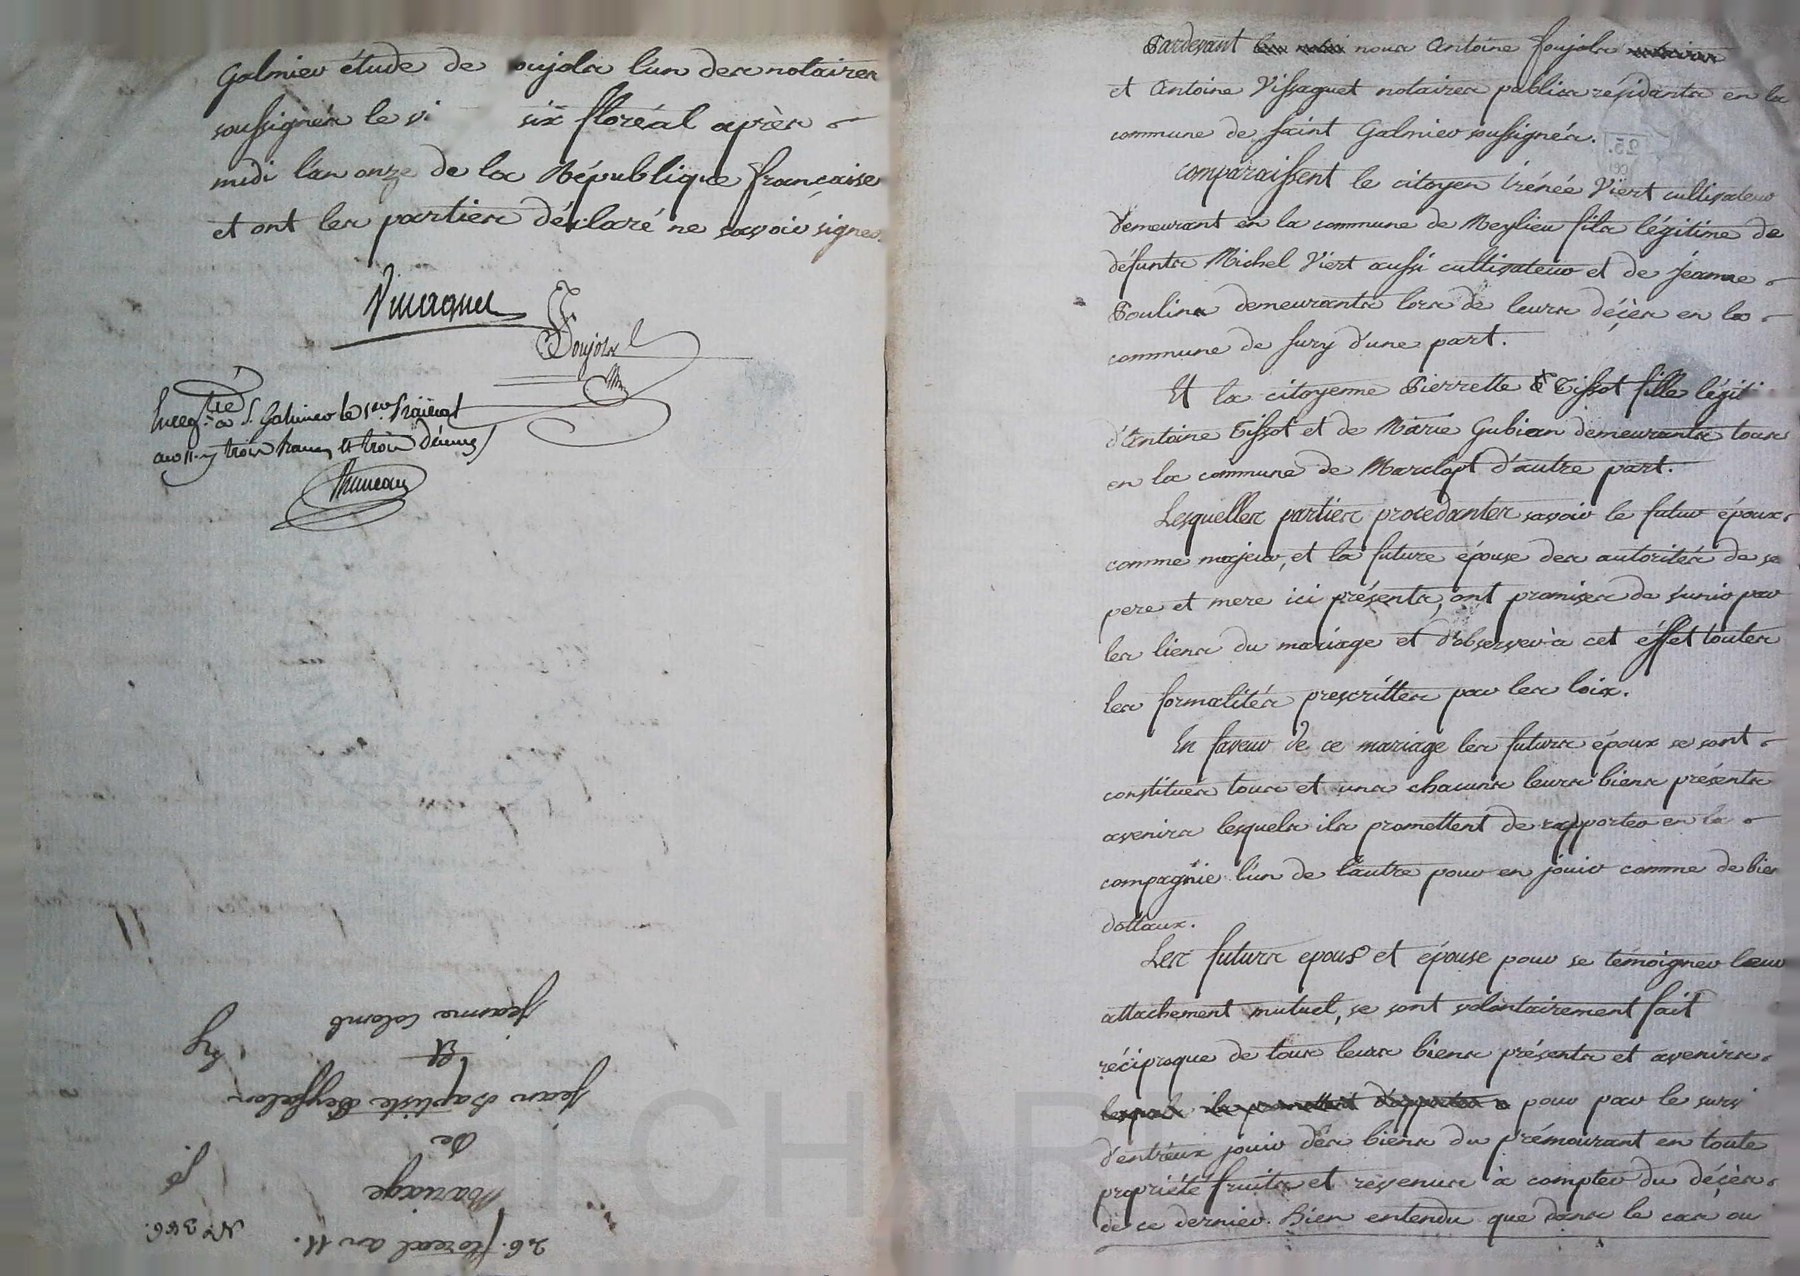 Galmier étude de oujols l'un des notaires
soussignés le vi six floréal après
midi l'an onze de la République française
et ont les parties déclaré ne savoir signer.
Foujols
à S. Galmier le
an 11. trois francs trois décimes
Jeanne Colomb
Et
Jean Baptiste
De
Mariage
26. floreal an 11.
Pardevant nous Antoine Foujols
et Antoine Vissaguet notaires publics résidants en la
commune de saint Galmier soussignés.
comparaissent le citoyen irénée Viert cultivateur
demeurant en la commune de Meylieu fils légitime de
défunts Michel Viert aussi cultivateur et de jeanne
Poulin demeurants lors de leurs décès en la
commune de sury d'une part.
Et la citoyenne Pierrette Tissot fille légit
d'Antoine Tissot et de Marie Gubian demeurants tous
en la commune de Marclopt d'autre part.
Lesquelles parties procedantes savoir le futur époux
comme majeur, et la future épouse des autorités de se
pere et mere ici présents, ont promises de s'unir par
les liens du mariage et d'observer à cet éffet toutes
les formalités prescrittes par les loix.
En faveur de ce mariage les futurs époux se sont
constitués tous et uns chacuns leurs biens présents
avenirs lesquels ils promettent de rapporter en la
compagnie l'un de l'autre pour en jouir comme de bien
dottaux.
Les futurs epoux et épouse pour se témoigner leur
attachement mutuel, se sont volontairement fait
réciproque de tous leurs biens présents et avenirs
lesquels ils promettent d'apporter pour par le survi
d'entreux jouir des biens du prémourant en toute
propriété fruits et revenus à compter du décès
de ce dernier. Bien entendu que dans le cas ou